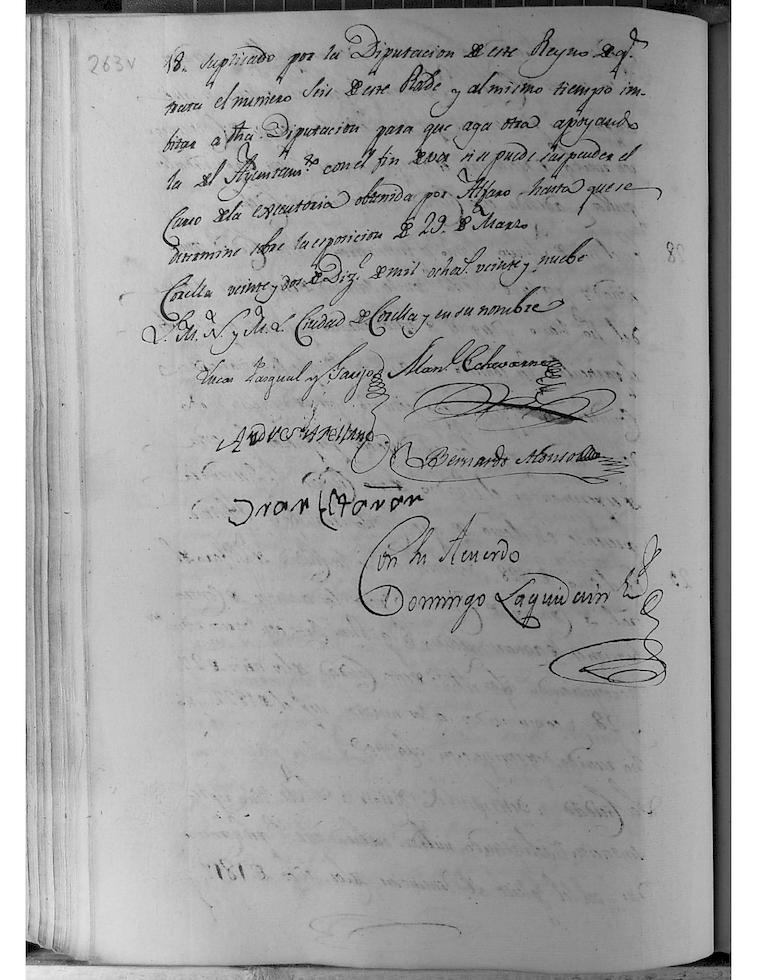 263v
18. suplicado por la Diputacion de este Reyno de q.e
trata el numero Seis de este Rolde y al mismo tiempo im-
bitar a dha Diputacion para que aga otra apoyando
la del Ayuntam.to con el fin de ver si se puede suspender el
Curso de la executoria obtenida por Alfaro hasta que se
determine sobre la esposicion de 29. de Marzo
Corella veinte y dos de Diz.e de mil ochoc.s veinte y nuebe
L. M. N. y M. L. Ciudad de Corella y en su nombre
Lucas Pasqual y Man.l Echevarria
Andres Arellano
Bernardo Alonso
Con su Acuerdo
Domingo Laquidain
28